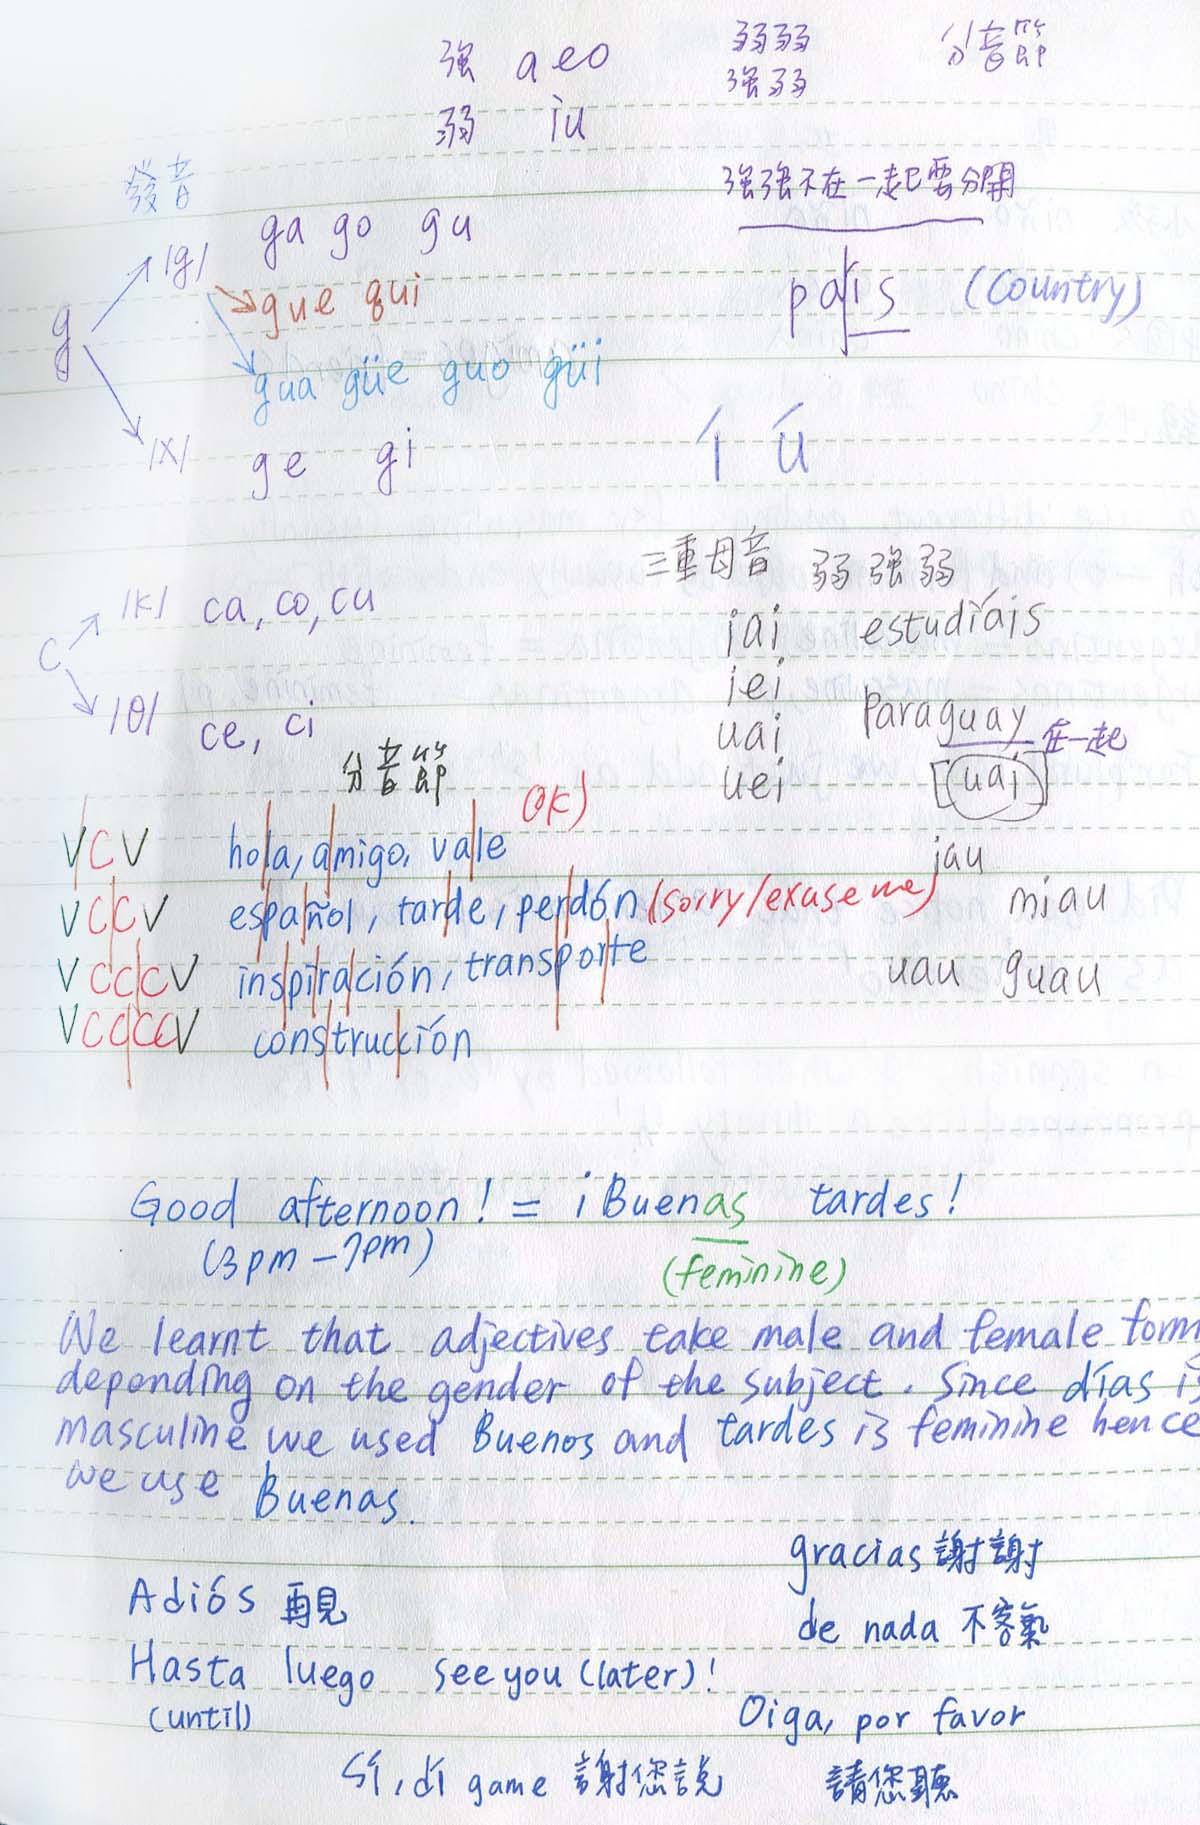 強 aeo
弱 iu
弱弱
強弱
分音節
發音
強強不在一起已要分開
país (Country)
í ú
g
/g/ ga go gu
gue gui
gua güe guo güi
/x/ ge gi
c
/k/ ca, co, cu
/θ/ ce, ci
三重母音 弱強弱
iai estudíáis
iei
uai Paraguay 在一起
uei [uai]
iau miau
uau guau
分音節
VCV hola, amigo, vale (OK)
VCCV español, tarde, perdón (sorry/exause me)
VCCCV inspiración, transporte
VCCCCV construcción
Good afternoon! = ¡Buenas tardes!
(3pm-7pm) (feminine)
We learnt that adjectives take male and female form
depending on the gender of the subject. Since días is
masculine we used Buenos and tardes is feminine hence
we use Buenas.
gracias 謝謝
Adiós 再見
de nada 不客氣
Hasta luego see you (later)!
(until)
Oiga, por favor
Sí, dí game 謝您說 請您聽